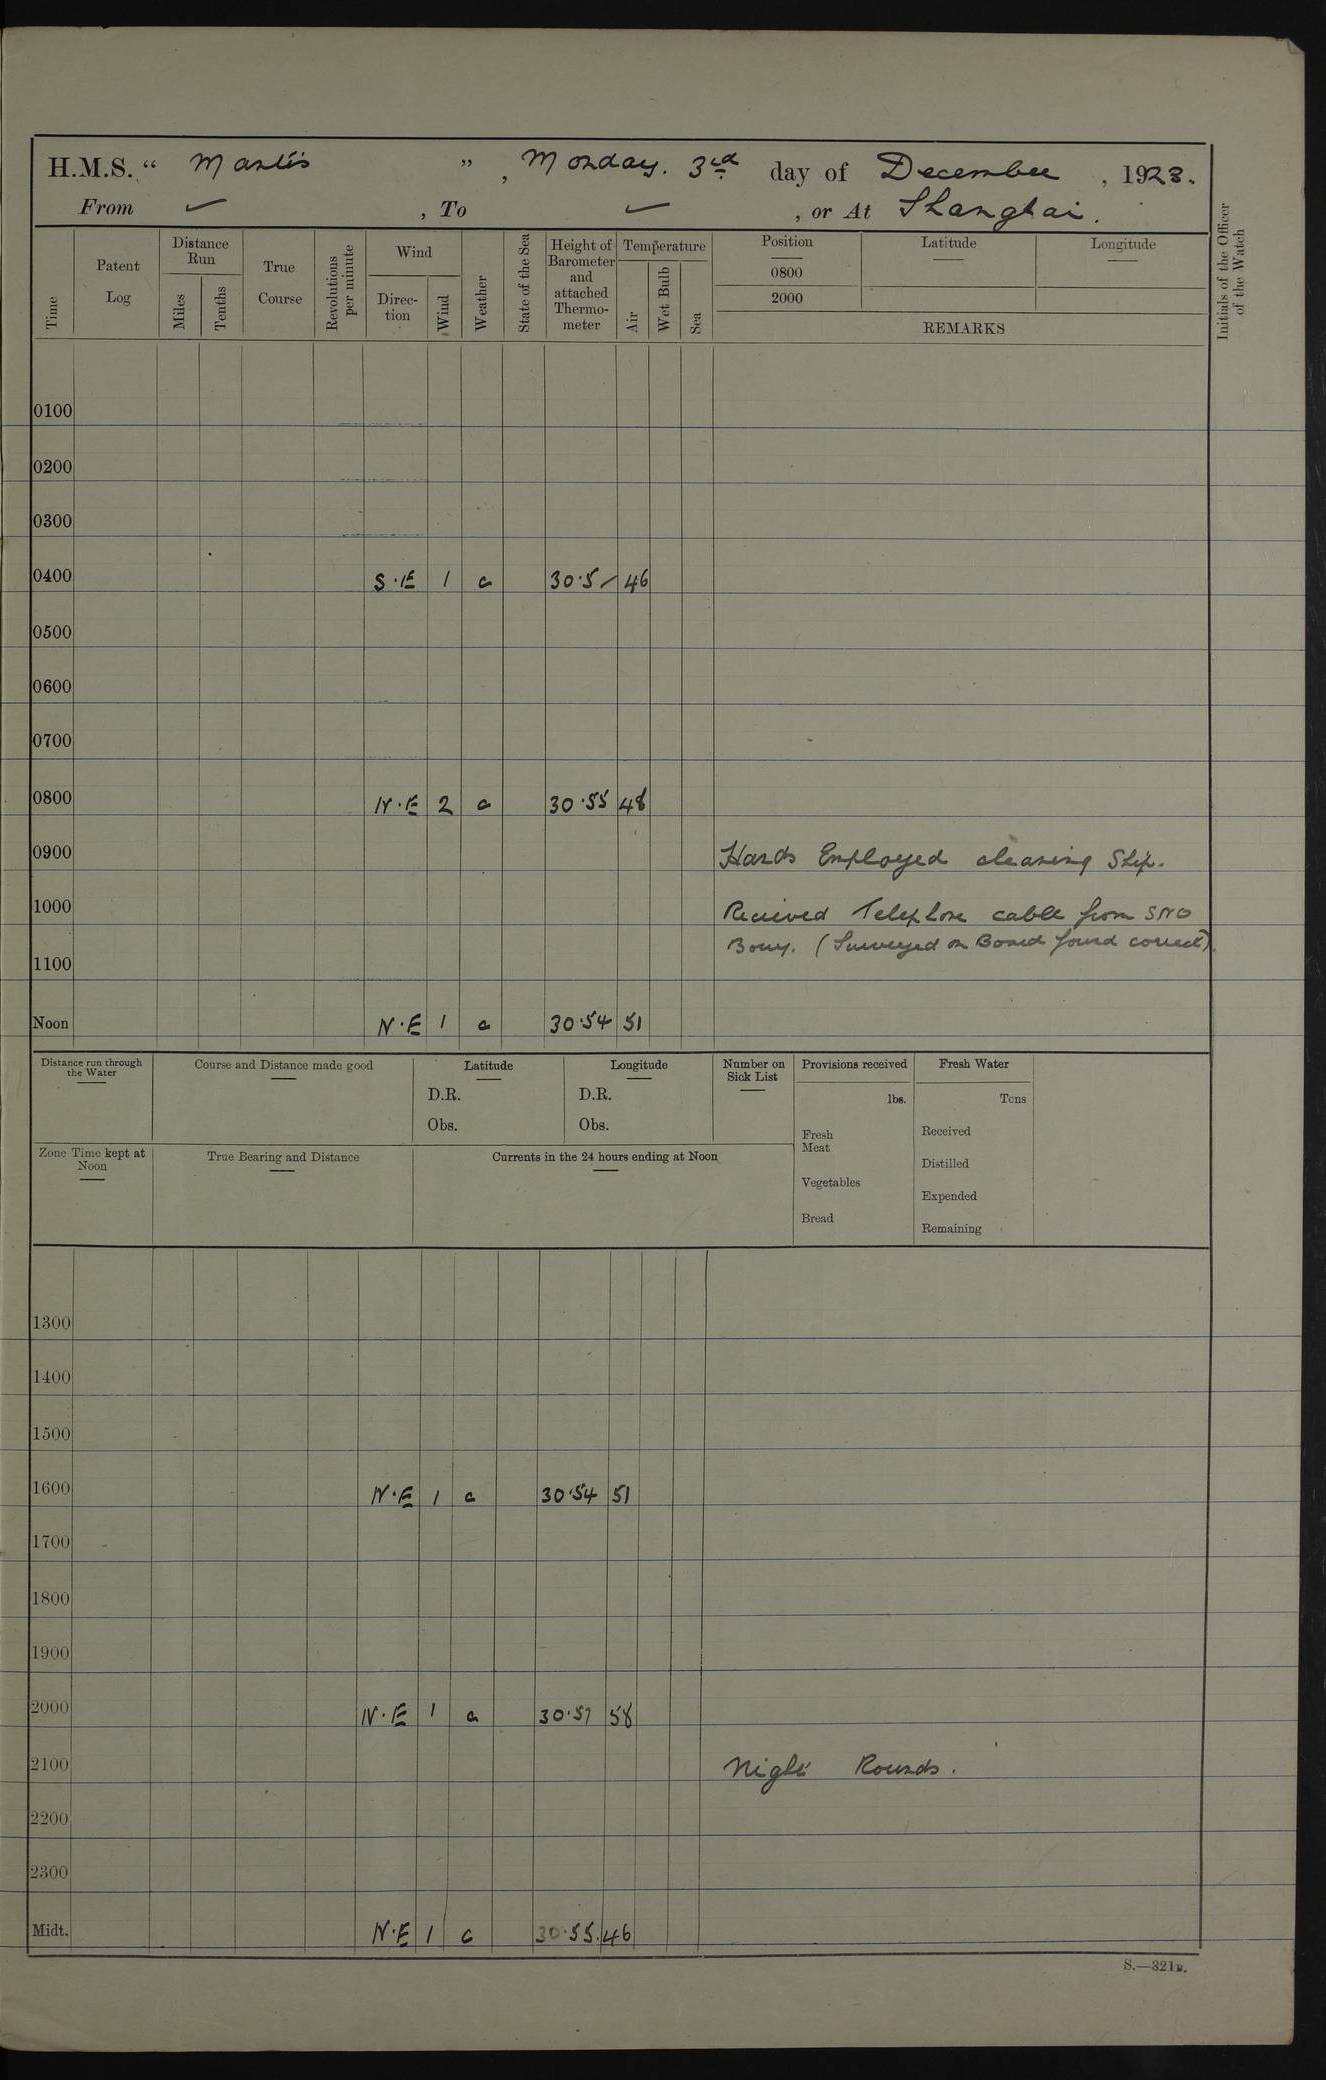 H.M.S. “ Mantis ” , Monday. 3rd day of December , 1923.
From ✓ , To ✓ , or At Shanghai.
Time
Patent Log
Distance Run
Miles
Tenths
True Course
Revolutions per minute
Wind
Direc-tion
Wind
Weather
State of the Sea
Height of Barometer and attached Thermo-meter
Temperature
Air
Wet Bulb
Sea
Position
0800
2000
Latitude
Longitude
REMARKS
Initials of the Officer of the Watch
0100
0200
0300
0400 S.E 1 c 30.5 46
0500
0600
0700
0800 N.E 2 c 30.55 48
0900 Hands Employed cleaning Ship.
1000 Received Telephone cable from SNO
Bouy. (Surveyed on Board found correct).
1100
Noon N.E 1 c 30.54 51
Distance run through the Water
Course and Distance made good
Latitude
D.R.
Obs.
Longitude
D.R.
Obs.
Number on Sick List
Provisions received
lbs.
Fresh Meat
Vegetables
Bread
Fresh Water
Tons
Received
Distilled
Expended
Remaining
Zone Time kept at Noon
True Bearing and Distance
Currents in the 24 hours ending at Noon
1300
1400
1500
1600 N.E 1 c 30.54 51
1700
1800
1900
2000 N.E 1 c 30.57 58
2100 Night Rounds.
2200
2300
Midt. N.E 1 c 30.55. 46
S.—321B.